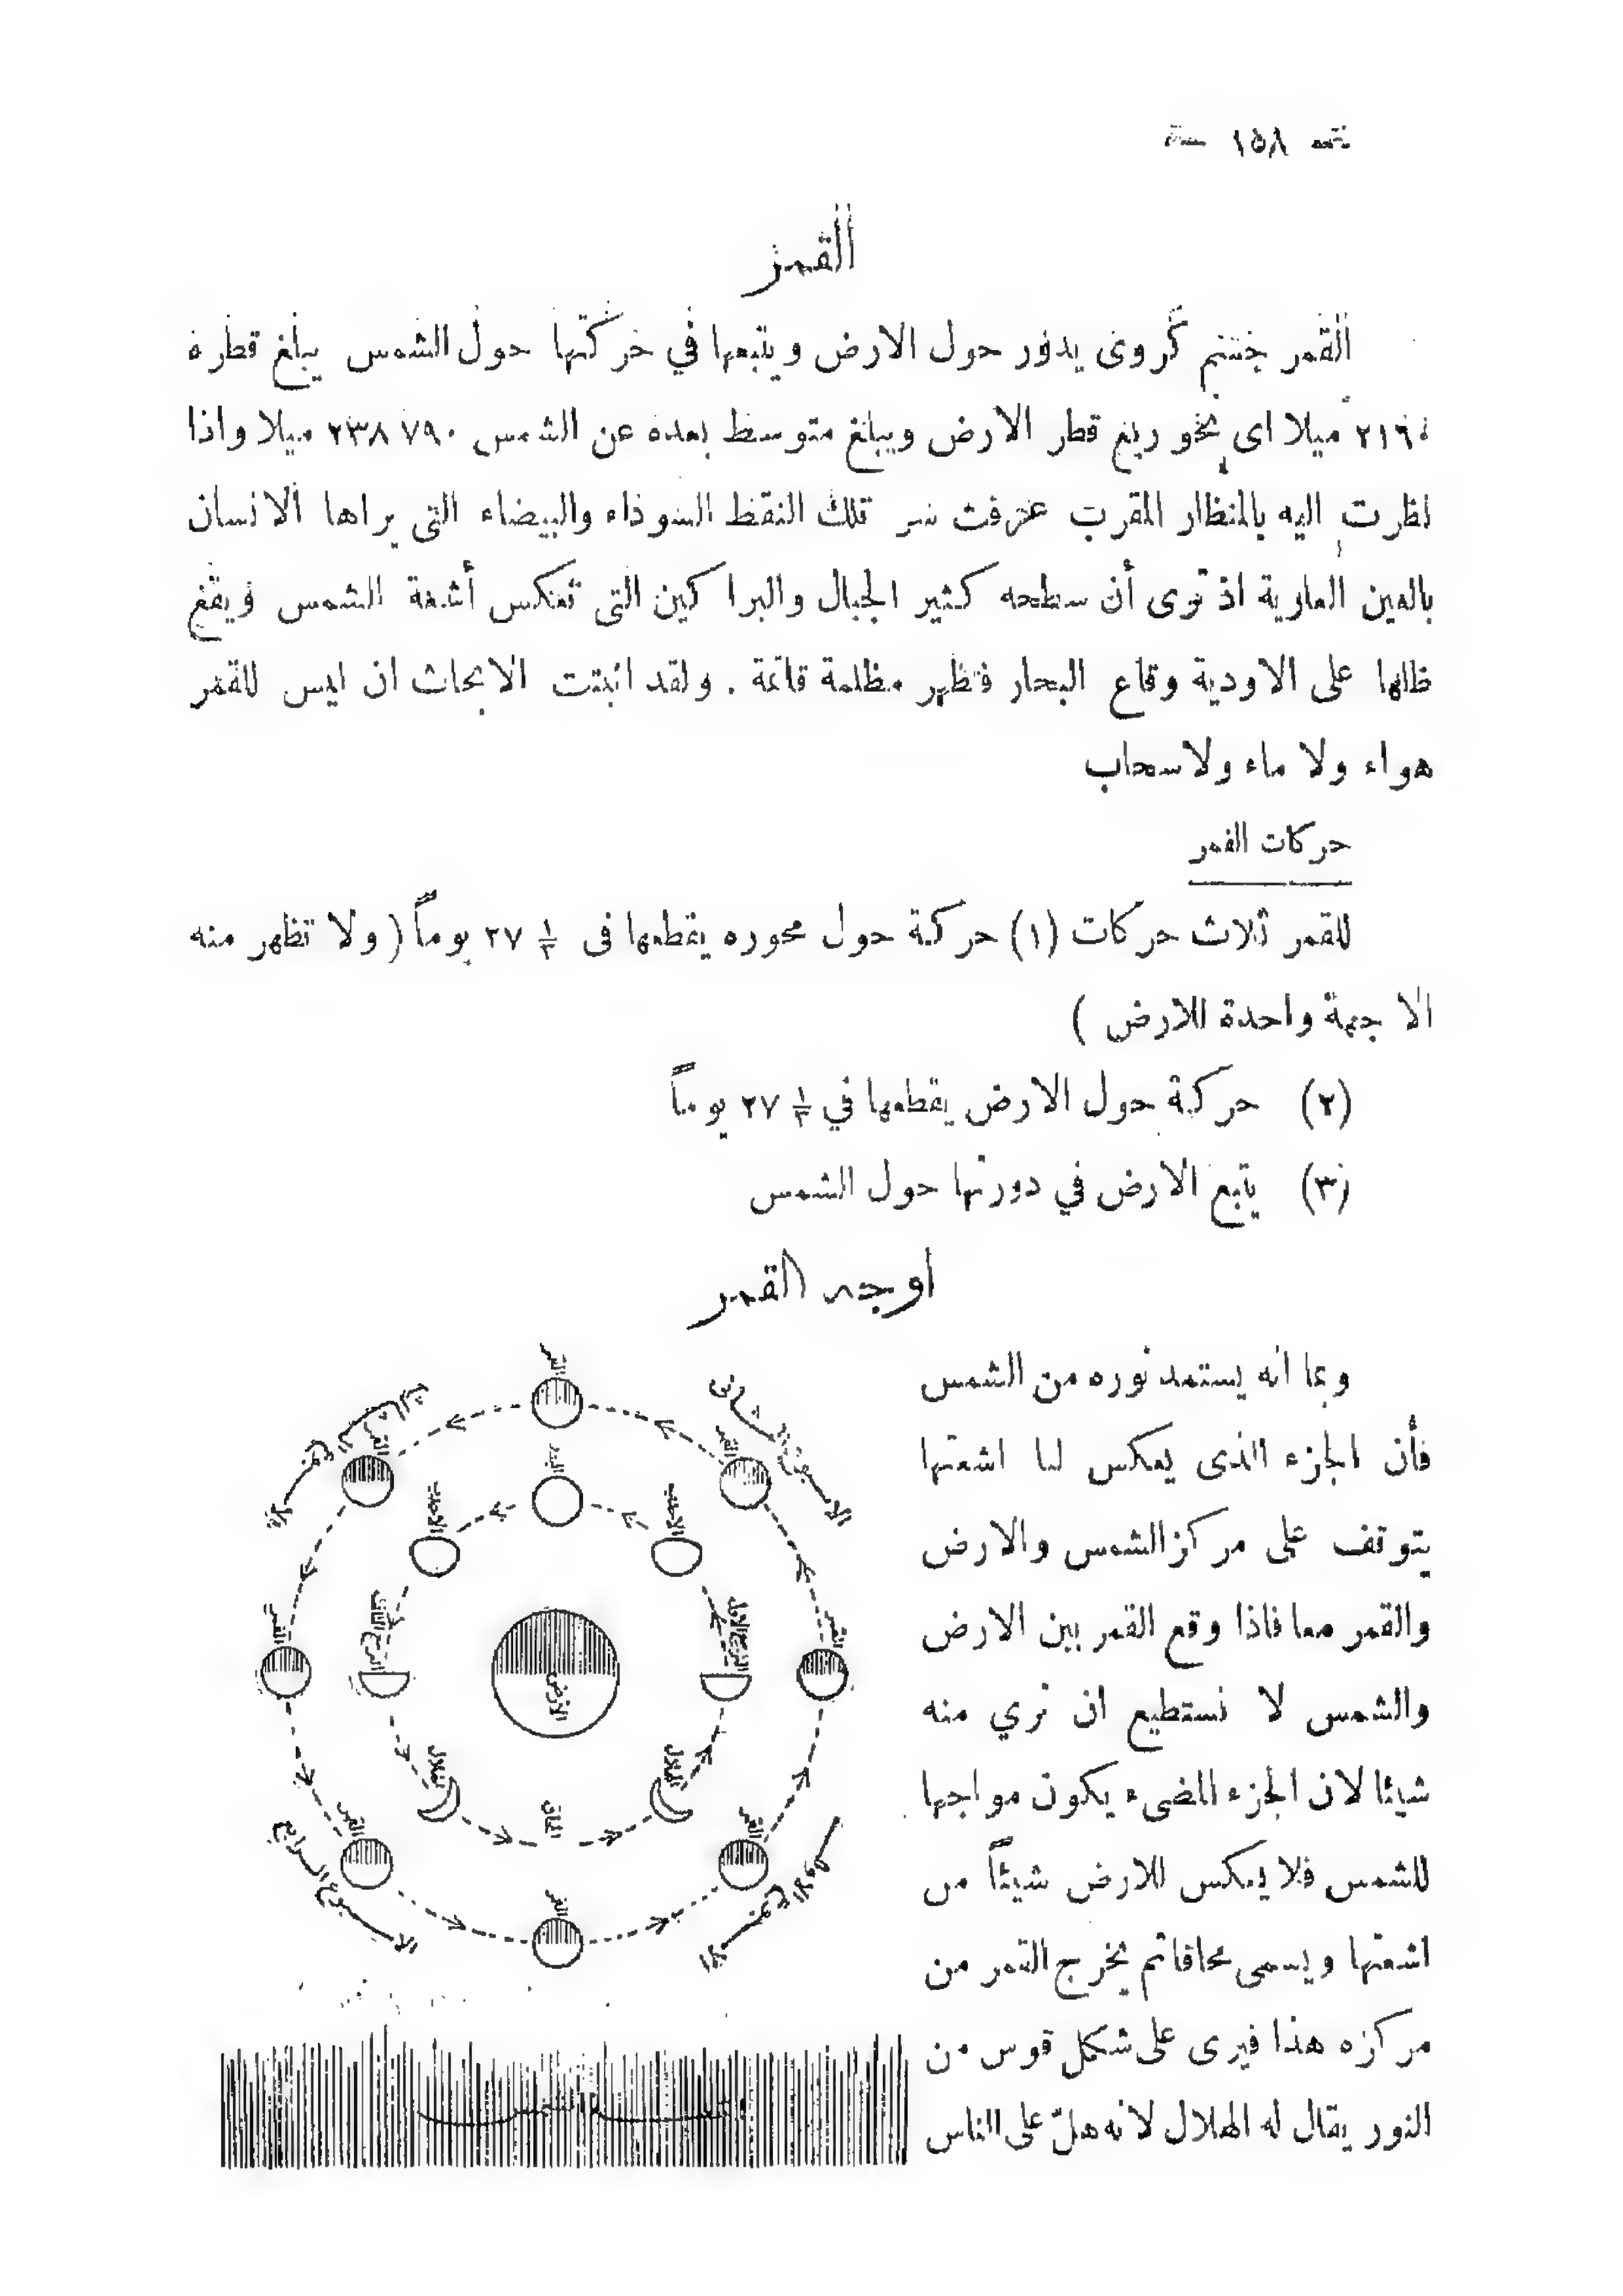 ١٥٨
القمر
القمر جسم كروى يدور حول الارض ويتبعها في حركتها حول الشمس يبلغ قطره
٢١٦٠ ميلا اى نحو ربع قطر الارض ويبلغ متوسط بعده عن الشمس ٢٣٨٧٩٠ ميلا واذا
نظرت اليه بالمنظار المقرب عرفت سر تلك النقط السوداء والبيضاء التى يراها الانسان
بالعين العارية اذ ترى أن سطحه كثير الجبال والبراكين التى تعكس أشعة الشمس ويقع
ظلها على الاودية وقاع البحار فتظهر مظلمة قاتمة . ولقد اثبتت الابحاث ان ليس للقمر
هواء ولا ماء ولا سحاب
حركات القمر
للقمر ثلاث حركات (١) حركة حول محوره يقطعها فى ٢٧ ١/٣ يوماً ( ولا تظهر منه
الا جهة واحدة للارض )
(٢) حركة حول الارض يقطعها في ٢٧ ١/٣ يوماً
(٣) يتبع الارض في دورتها حول الشمس
اوجه القمر
وبما انه يستمد نوره من الشمس
فأن الجزء الذى يعكس لنا اشعتها
يتوقف على مركز الشمس والارض
والقمر معا فاذا وقع القمر بين الارض
والشمس لا نستطيع ان نري منه
شيئا لان الجزء المضىء يكون مواجها
للشمس فلا يعكس للارض شيئاً من
اشعتها ويسمى محاقا ثم يخرج القمر من
مركزه هذا فيرى على شكل قوس من
النور يقال له الهلال لانه هلّ على الناس
القمر
القمر
القمر
القمر
القمر
القمر
القمر
القمر
البدر
الاحدب
الاحدب
التربيع الاول
التربيع الثالث
الارض
الهلال
الهلال
المحاق
الاسبوع الثانى
الاسبوع الثالث
الاسبوع الرابع
الاسبوع الاول